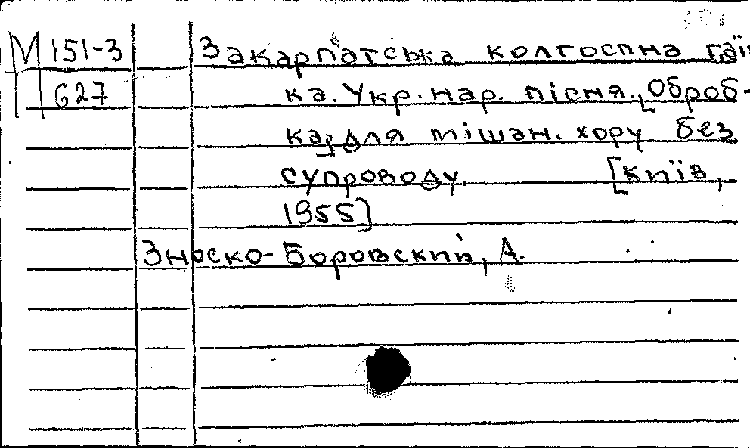 М 151-3 Закарпатська колгоспна гаїв
627 ка. Укр. нар. пісня. [Оброб-
ка] для мішан. хору без
супроводу. [Київ,
1955]
Зноско-Боровский, А.